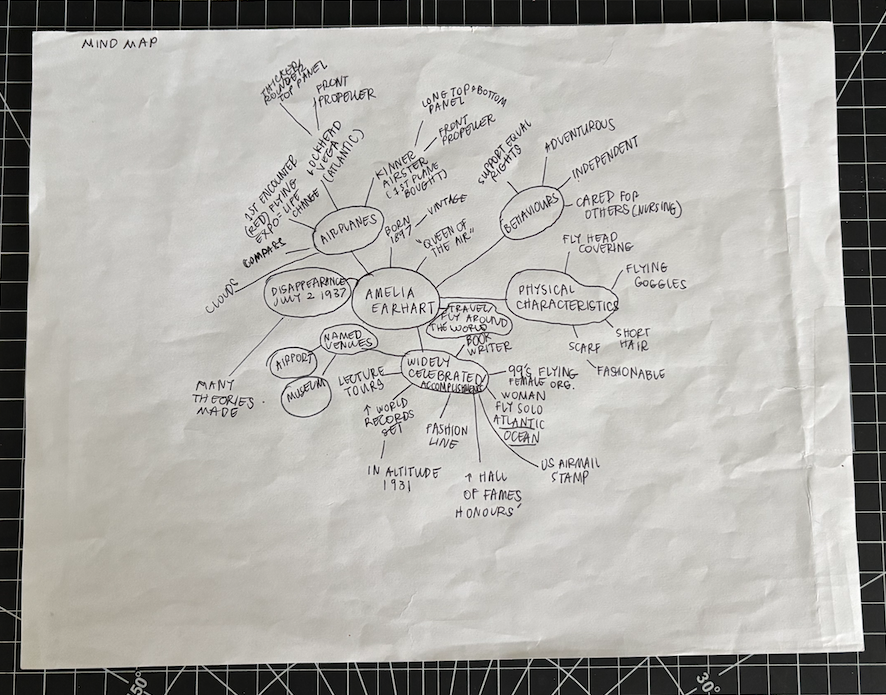 MIND MAP
THICKER
ROUNDED
TOP PANEL
FRONT
PROPELLER
LOCKHEAD
VEGA
(ATLANTIC)
LONG TOP & BOTTOM
PANEL
FRONT
PROPELLER
KINNER
AIRSTER
(1ST PLANE
BOUGHT)
1ST ENCOUNTER
(RED) FLYING
EXPO = LIFE
CHANGE
COMPASS
CLOUDS
AIRPLANES
BORN
1897
VINTAGE
"QUEEN OF
THE AIR"
SUPPORT EQUAL
RIGHTS
ADVENTUROUS
INDEPENDENT
CARED FOR
OTHERS (NURSING)
BEHAVIOURS
DISAPPEARANCE
JULY 2 1937
MANY
THEORIES
MADE.
AMELIA
EARHART
FLY HEAD
COVERING
FLYING
GOGGLES
PHYSICAL
CHARACTERISTICS
SHORT
HAIR
SCARF
FASHIONABLE
TRAVEL/
FLY AROUND
THE WORLD
BOOK
WRITER
NAMED
VENUES
AIRPORT
MUSEUM
WIDELY
CELEBRATED
ACCOMPLISHMENT
LECTURE
TOURS
↑ WORLD
RECORDS
SET
IN ALTITUDE
1931
FASHION
LINE
↑ HALL
OF FAMES
HONOURS
99'S FLYING
FEMALE ORG.
WOMAN
FLY SOLO
ATLANTIC
OCEAN
US AIRMAIL
STAMP
50°
30°